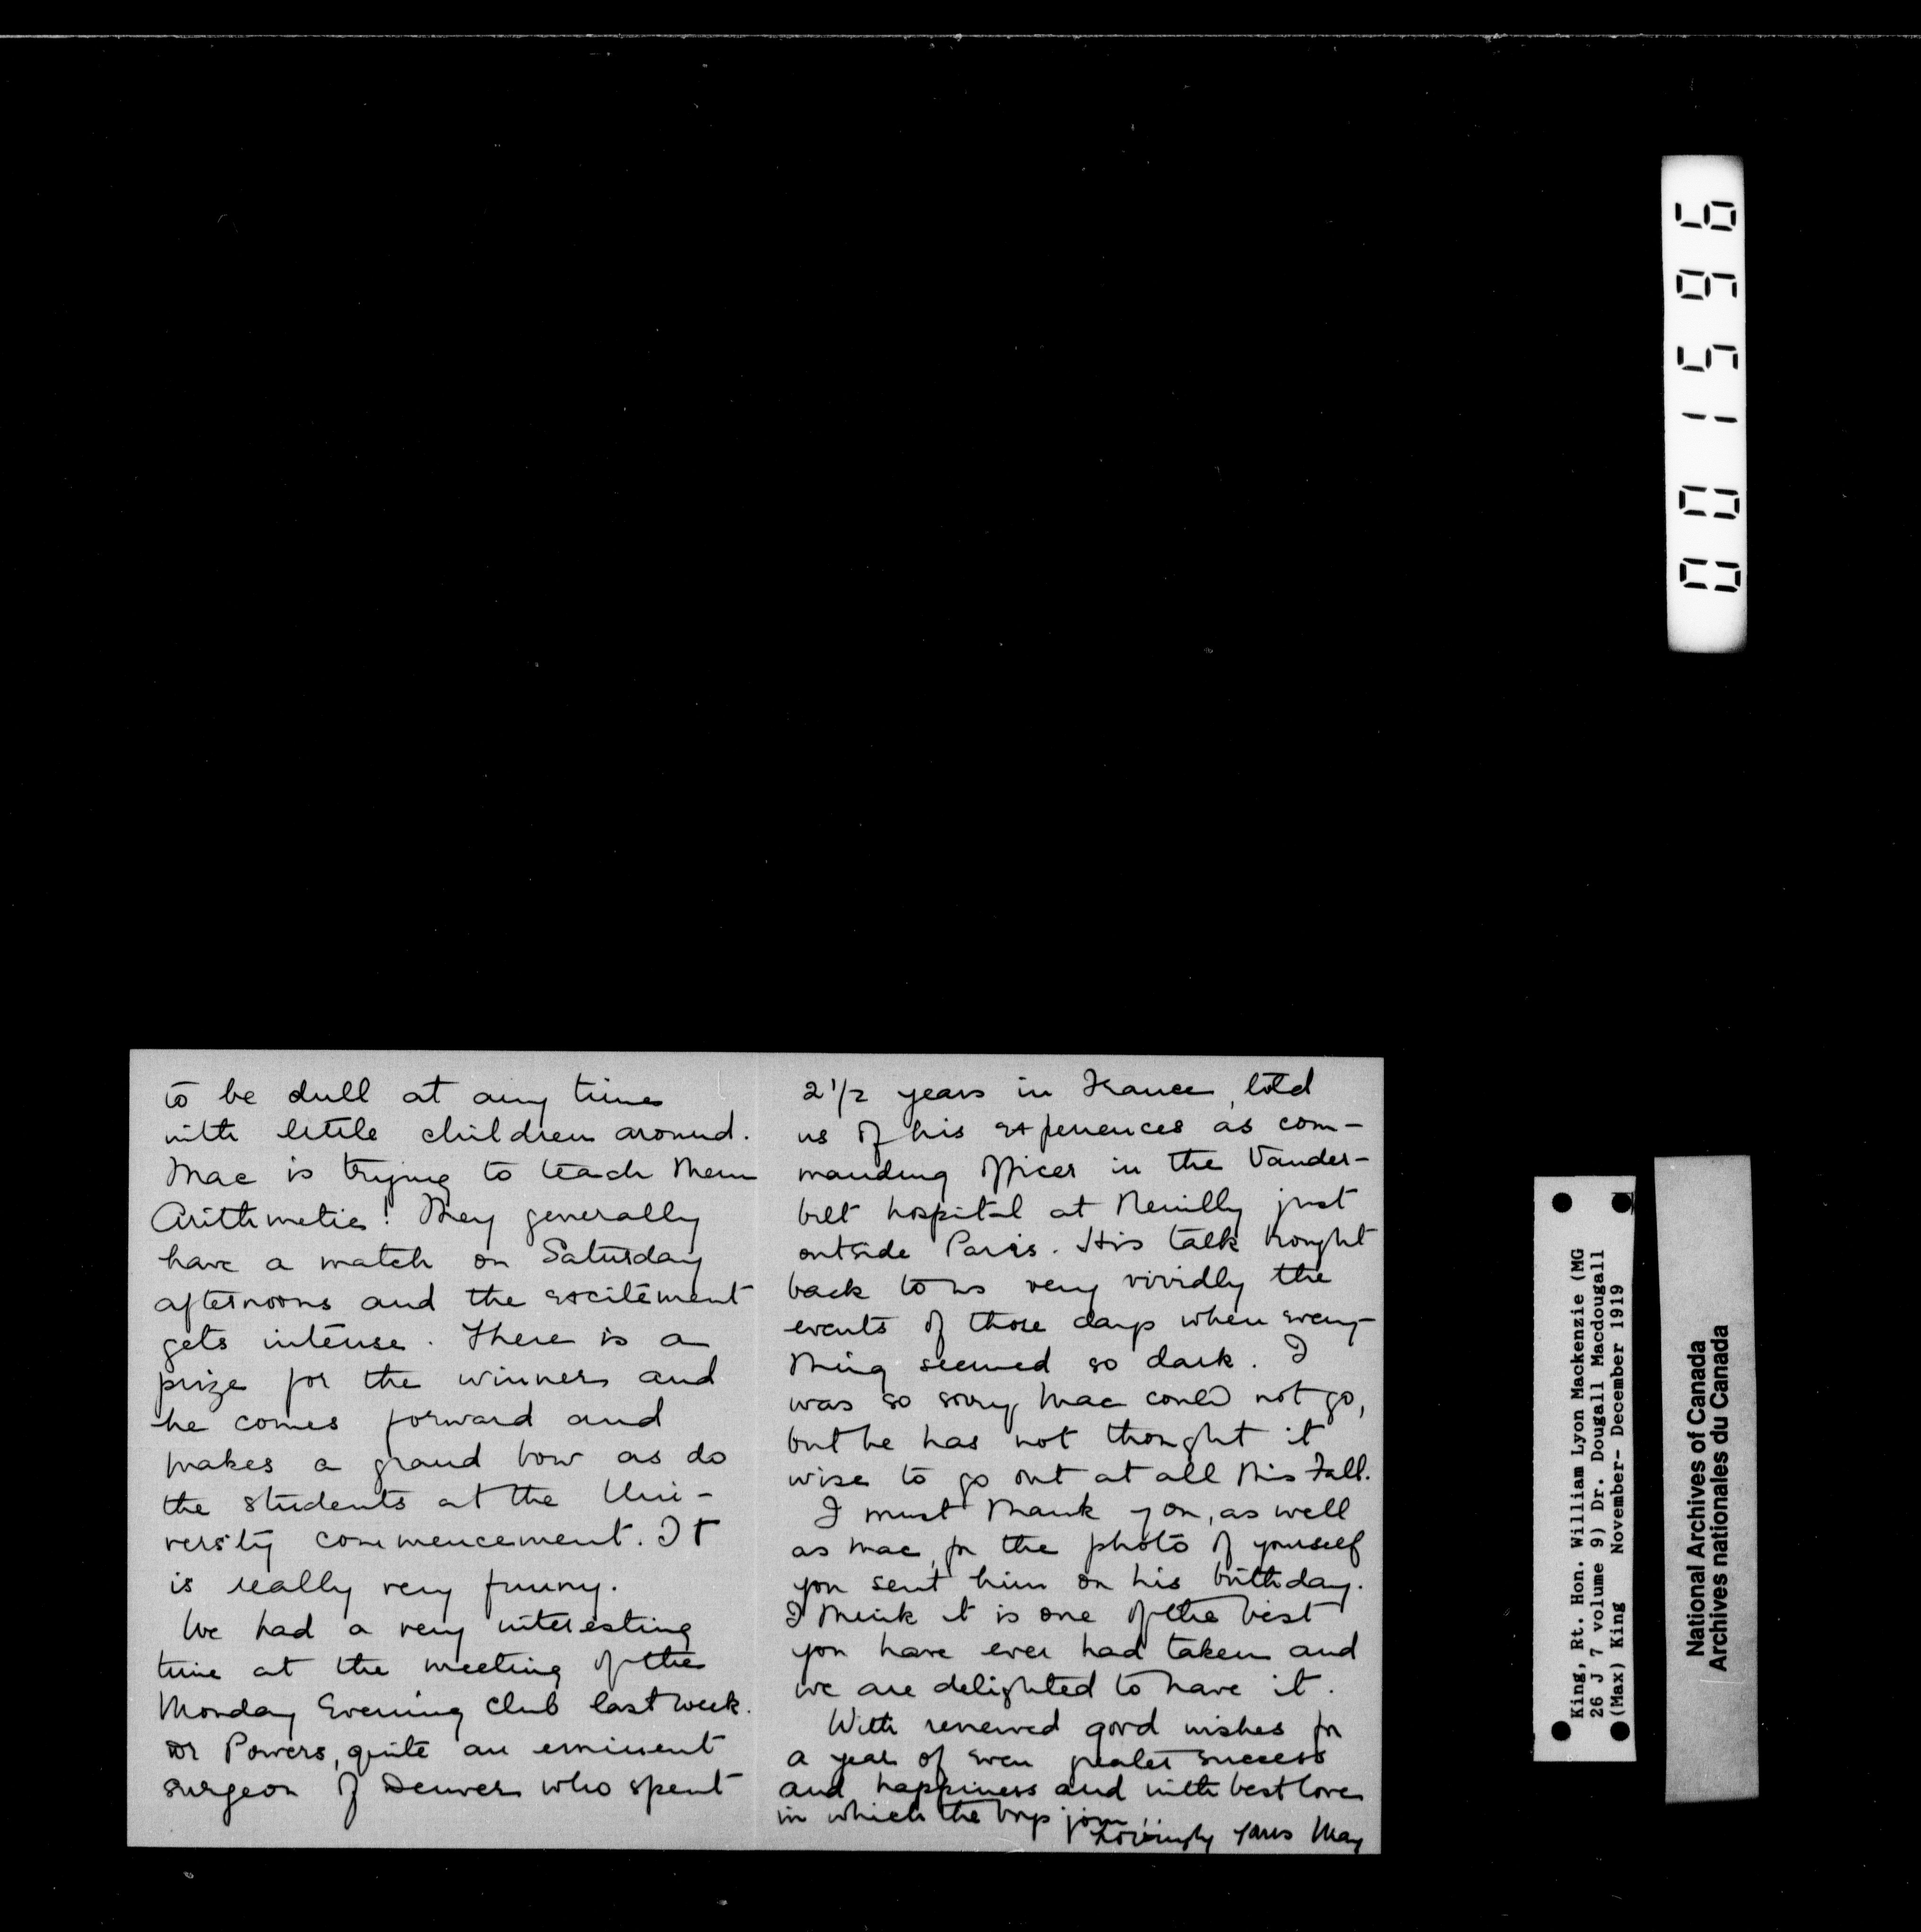 to be dull at any time
with little children around.
Mac is trying to teach them
Arithmetic! They generally
have a match on Saturday
afternoons and the excitement
gets intense. There is a
prize for the winner and
he comes forward and
makes a grand bow as do
the students at the Uni-
versity commencement. It
is really very funny.
We had a very interesting
time at the meeting of the
Monday Evening Club last week.
Dr Powers, quite an eminent
surgeon of Denver who spent
2 1/2 years in France, told
us of his experiences as com-
manding officer in the Vander-
bilt hospital at Neuilly just
outside Paris. His talk brought
back to us very vividly the
events of those days when every-
thing seemed so dark. I
was so sorry Mac could not go,
but he has not thought it
wise to go out at all this Fall.
I must thank you, as well
as Mac, for the photo of yourself
you sent him on his birthday.
I think it is one of the best
you have ever had taken and
we are delighted to have it.
With renewed good wishes for
a year of even greater success
and happiness and with best love
in which the boys join,
Lovingly yours May
001596
King, Rt. Hon. William Lyon Mackenzie (MG
26 J 7 volume 9) Dr. Dougall Macdougall
(Max) King November- December 1919
National Archives of Canada
Archives nationales du Canada